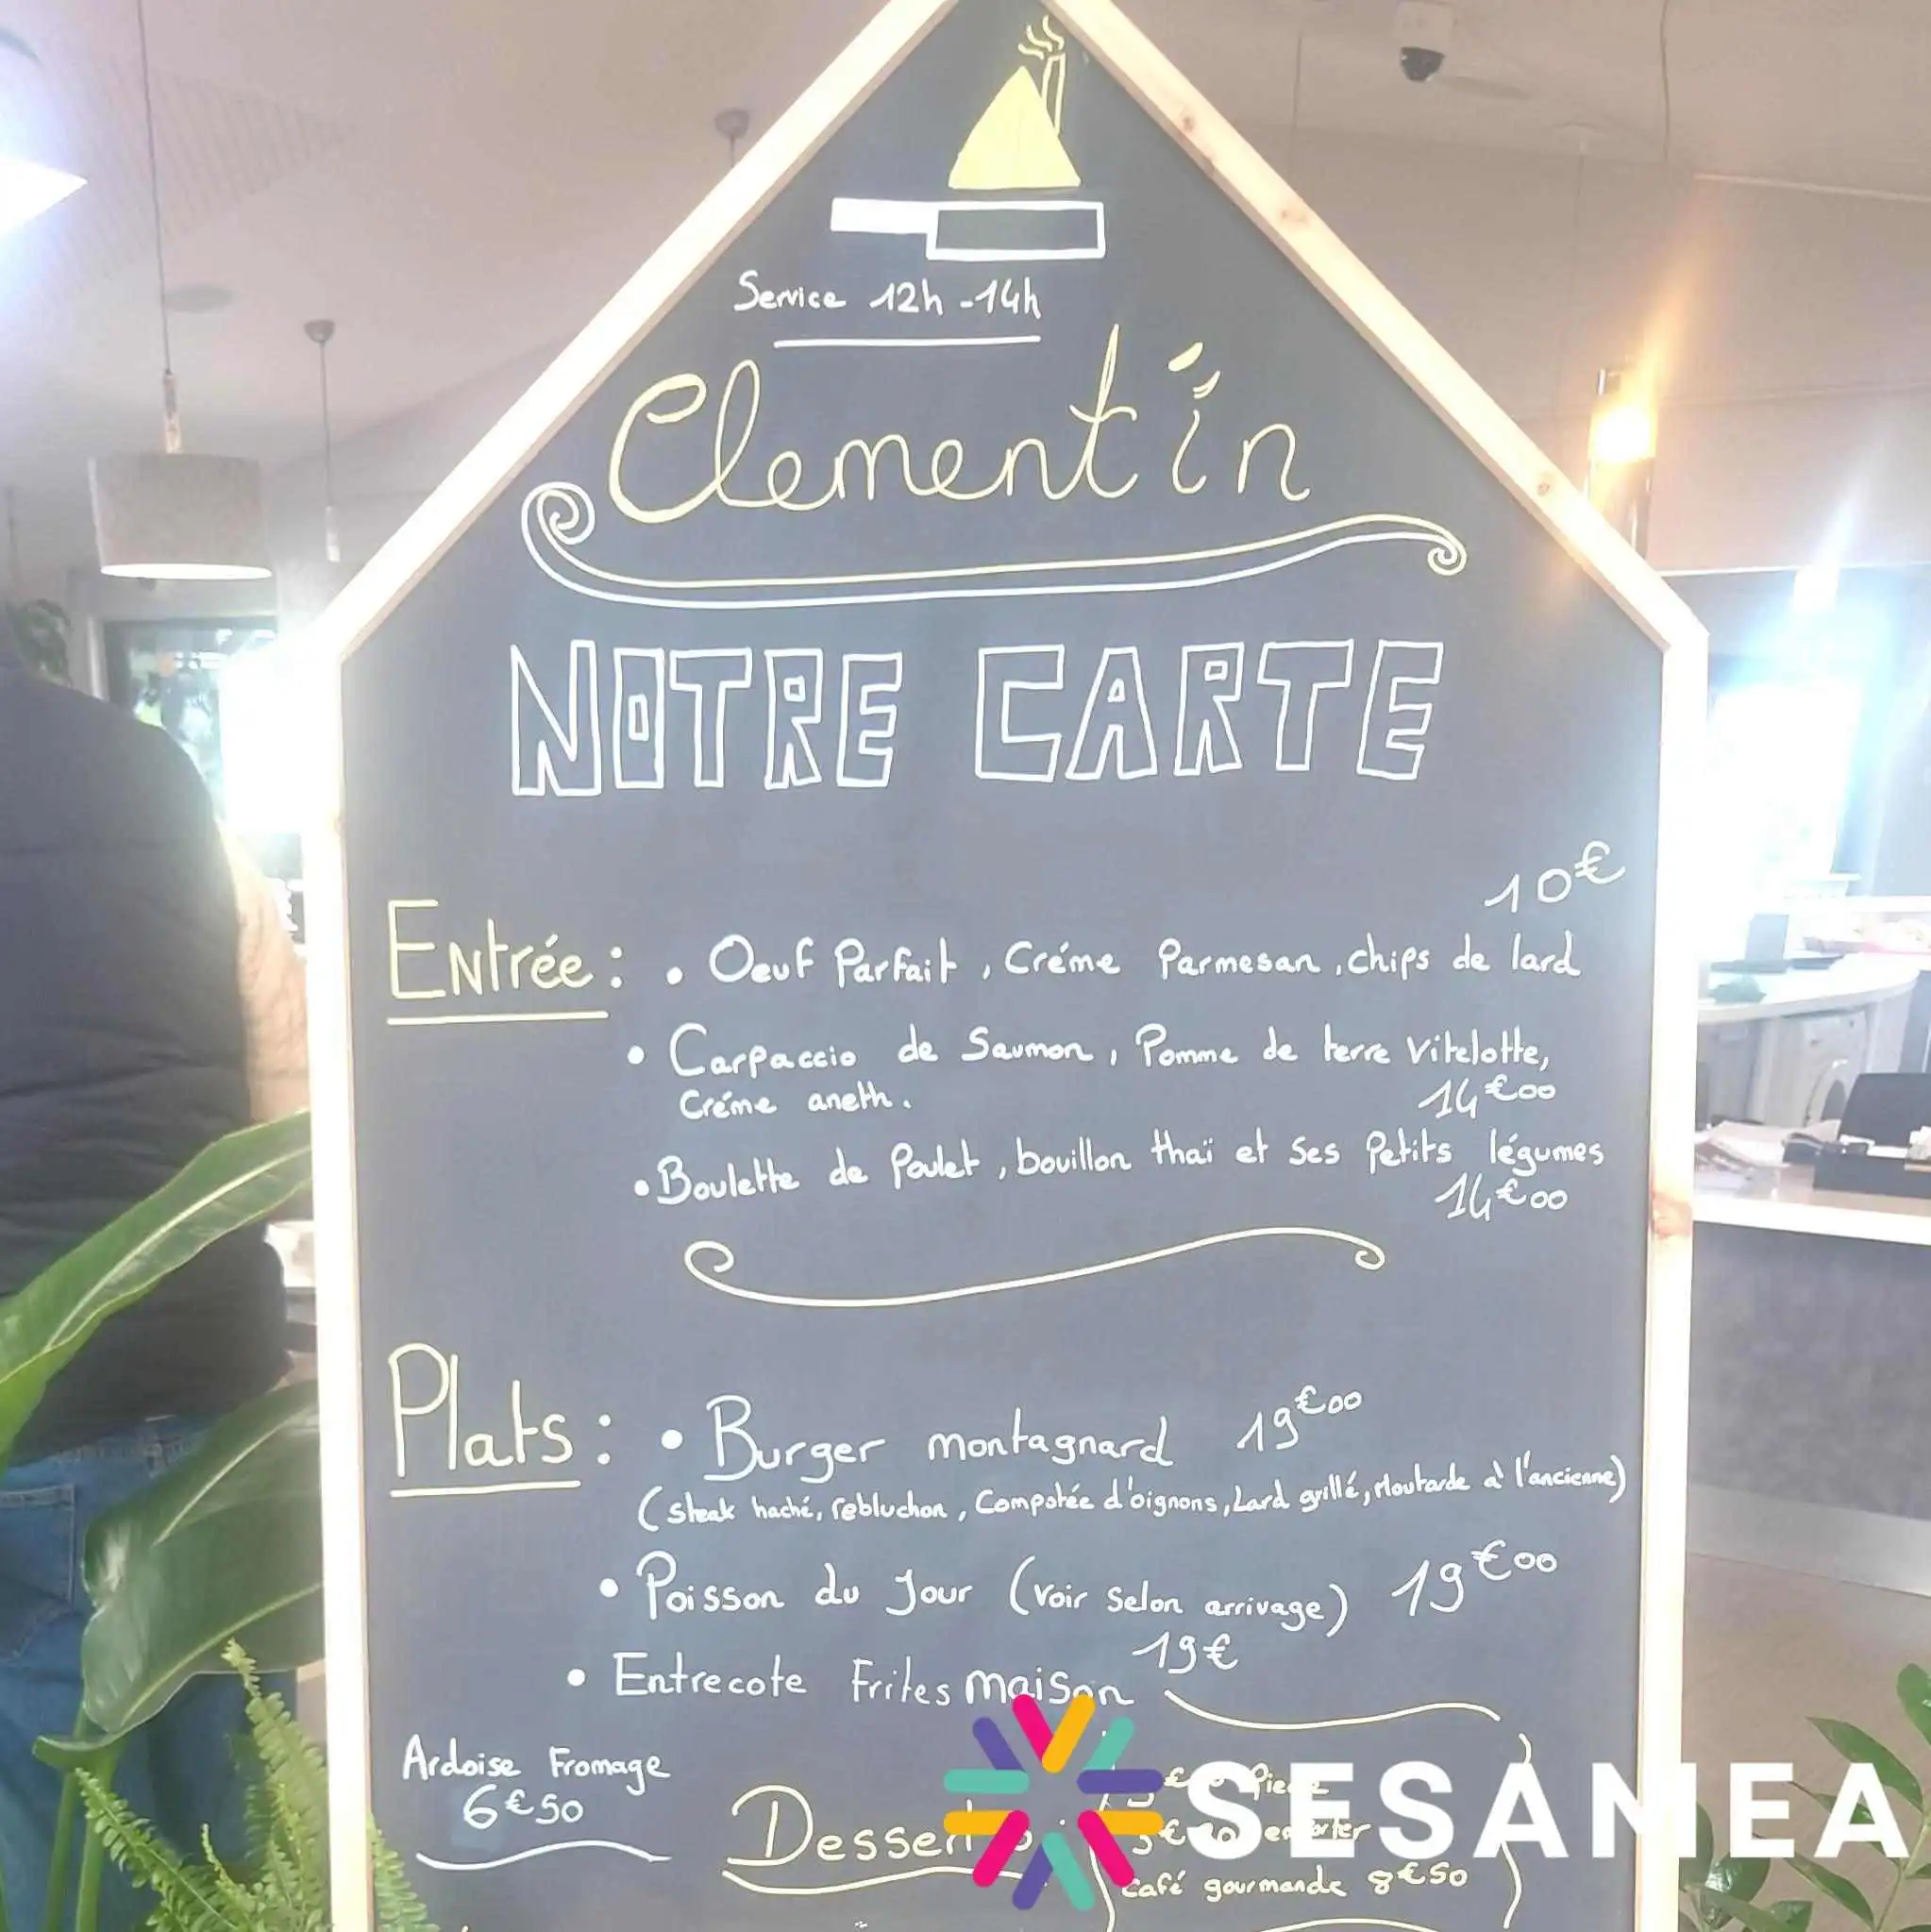 Service 12h -14h
Clementin
NOTRE CARTE
10€
Entrée : • Oeuf Parfait , Créme Parmesan , chips de lard
• Carpaccio de Saumon, Pomme de terre Vitelotte,
Créme aneth. 14€00
• Boulette de Poulet, bouillon thaï et ses Petits légumes
14€00
Plats : • Burger montagnard 19€00
(Steak haché, rebluchon, Compotée d'oignons, Lard grillé, Moutarde à l'ancienne)
• Poisson du Jour (voir selon arrivage) 19€00
• Entrecote Frites maison 19€
Ardoise Fromage
6€50
Dessert
café gourmande 8€50
SESAMEA